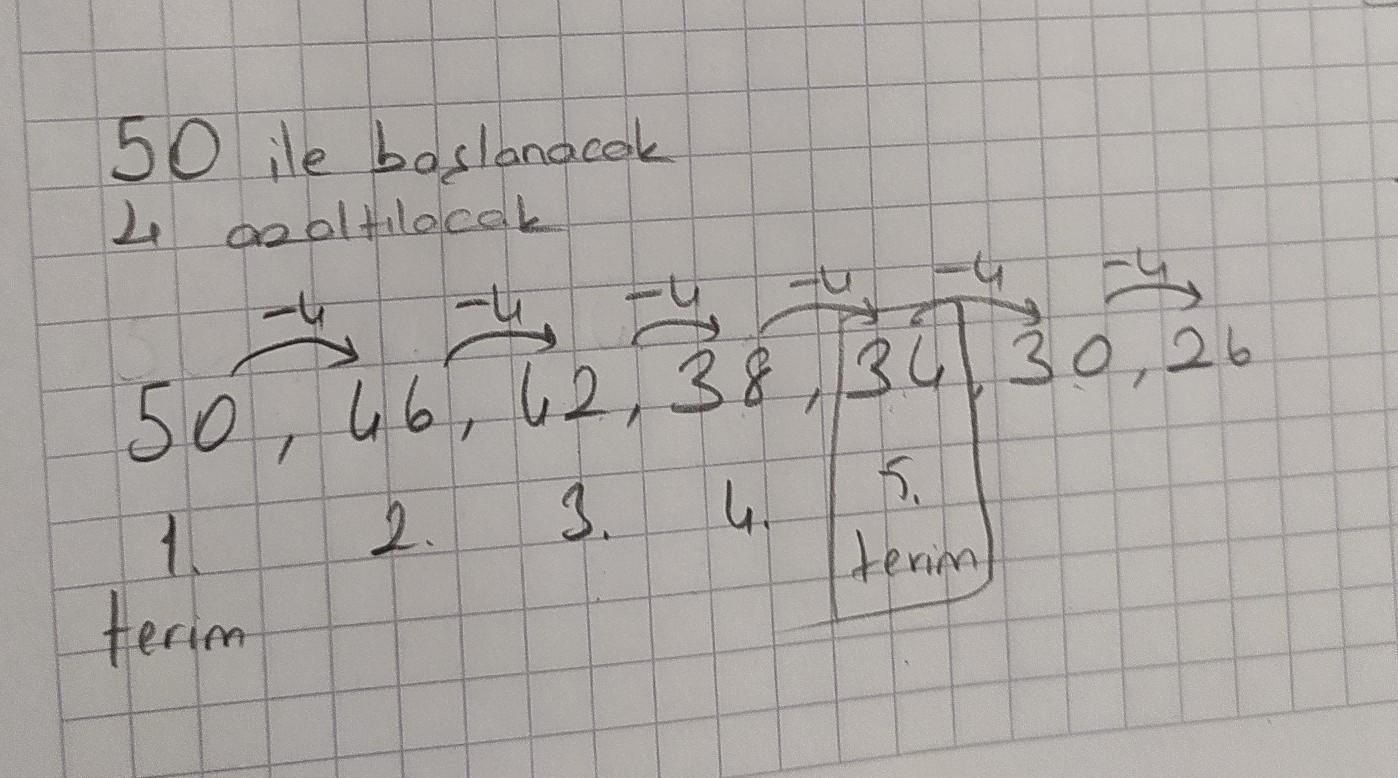 50 ile başlanacak
4 azaltılacak
-4 -4 -4 -4 -4 -4
50, 46, 42, 38, 34, 30, 26
1. 2. 3. 4. 5.
terim terim